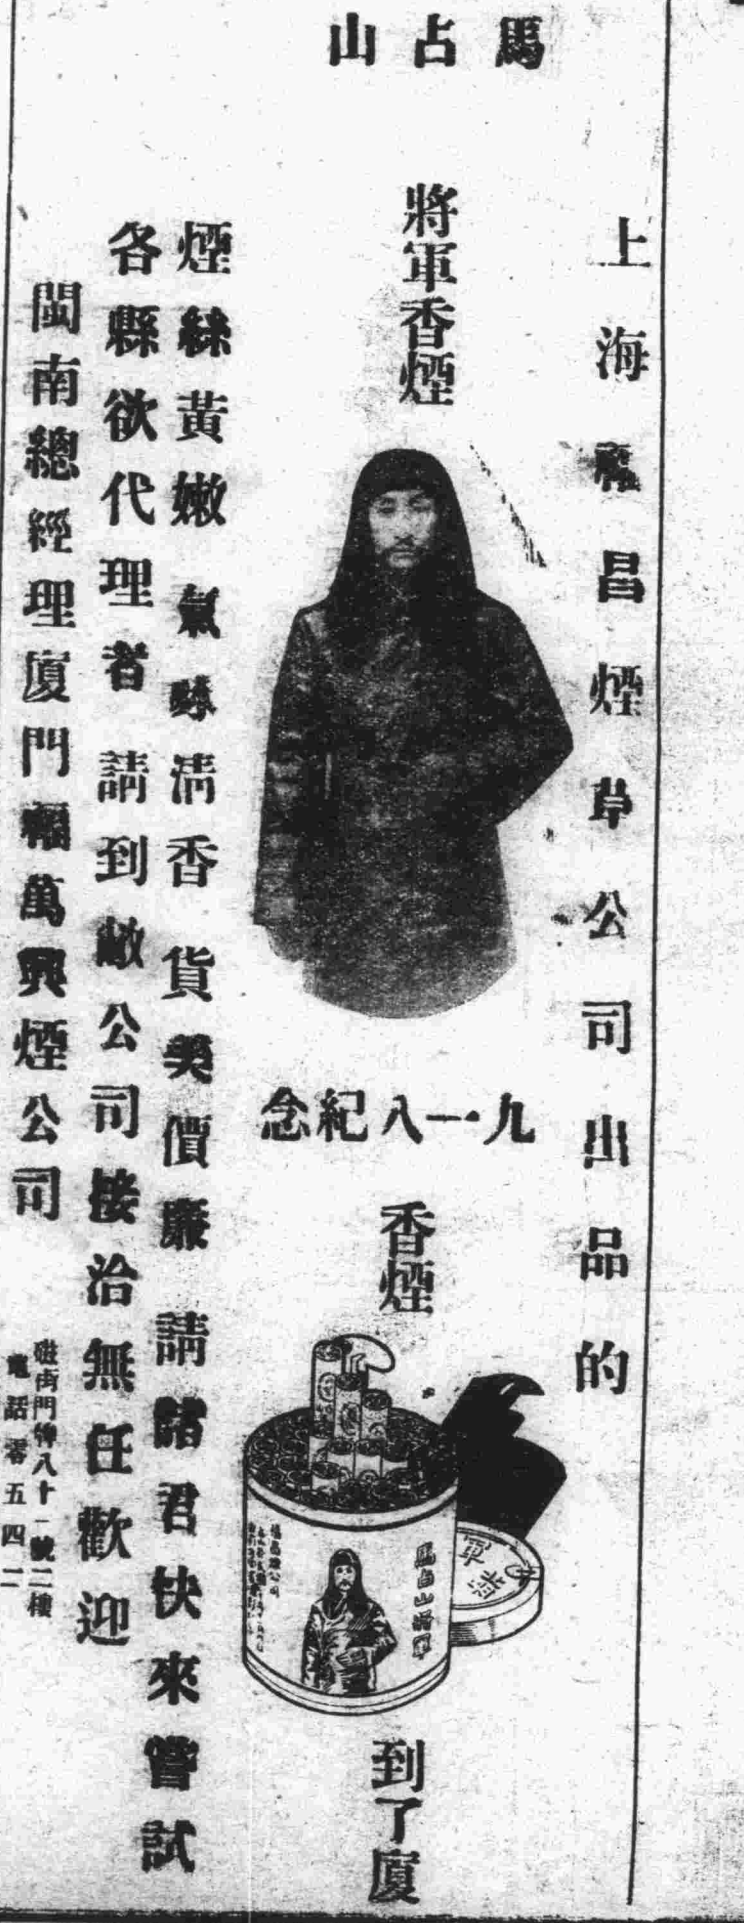 馬占山
上海福昌煙草公司出品的
將軍香煙
九一八紀念
香煙
馬占山將軍
將軍
到了廈
煙絲黃嫩 氣味清香 貨美價廉 請諸君快來嘗試
各縣欲代理者 請到敝公司接洽無任歡迎
閩南總經理廈門福萬興煙公司
磁街門牌八十一號二樓
電話零五四二